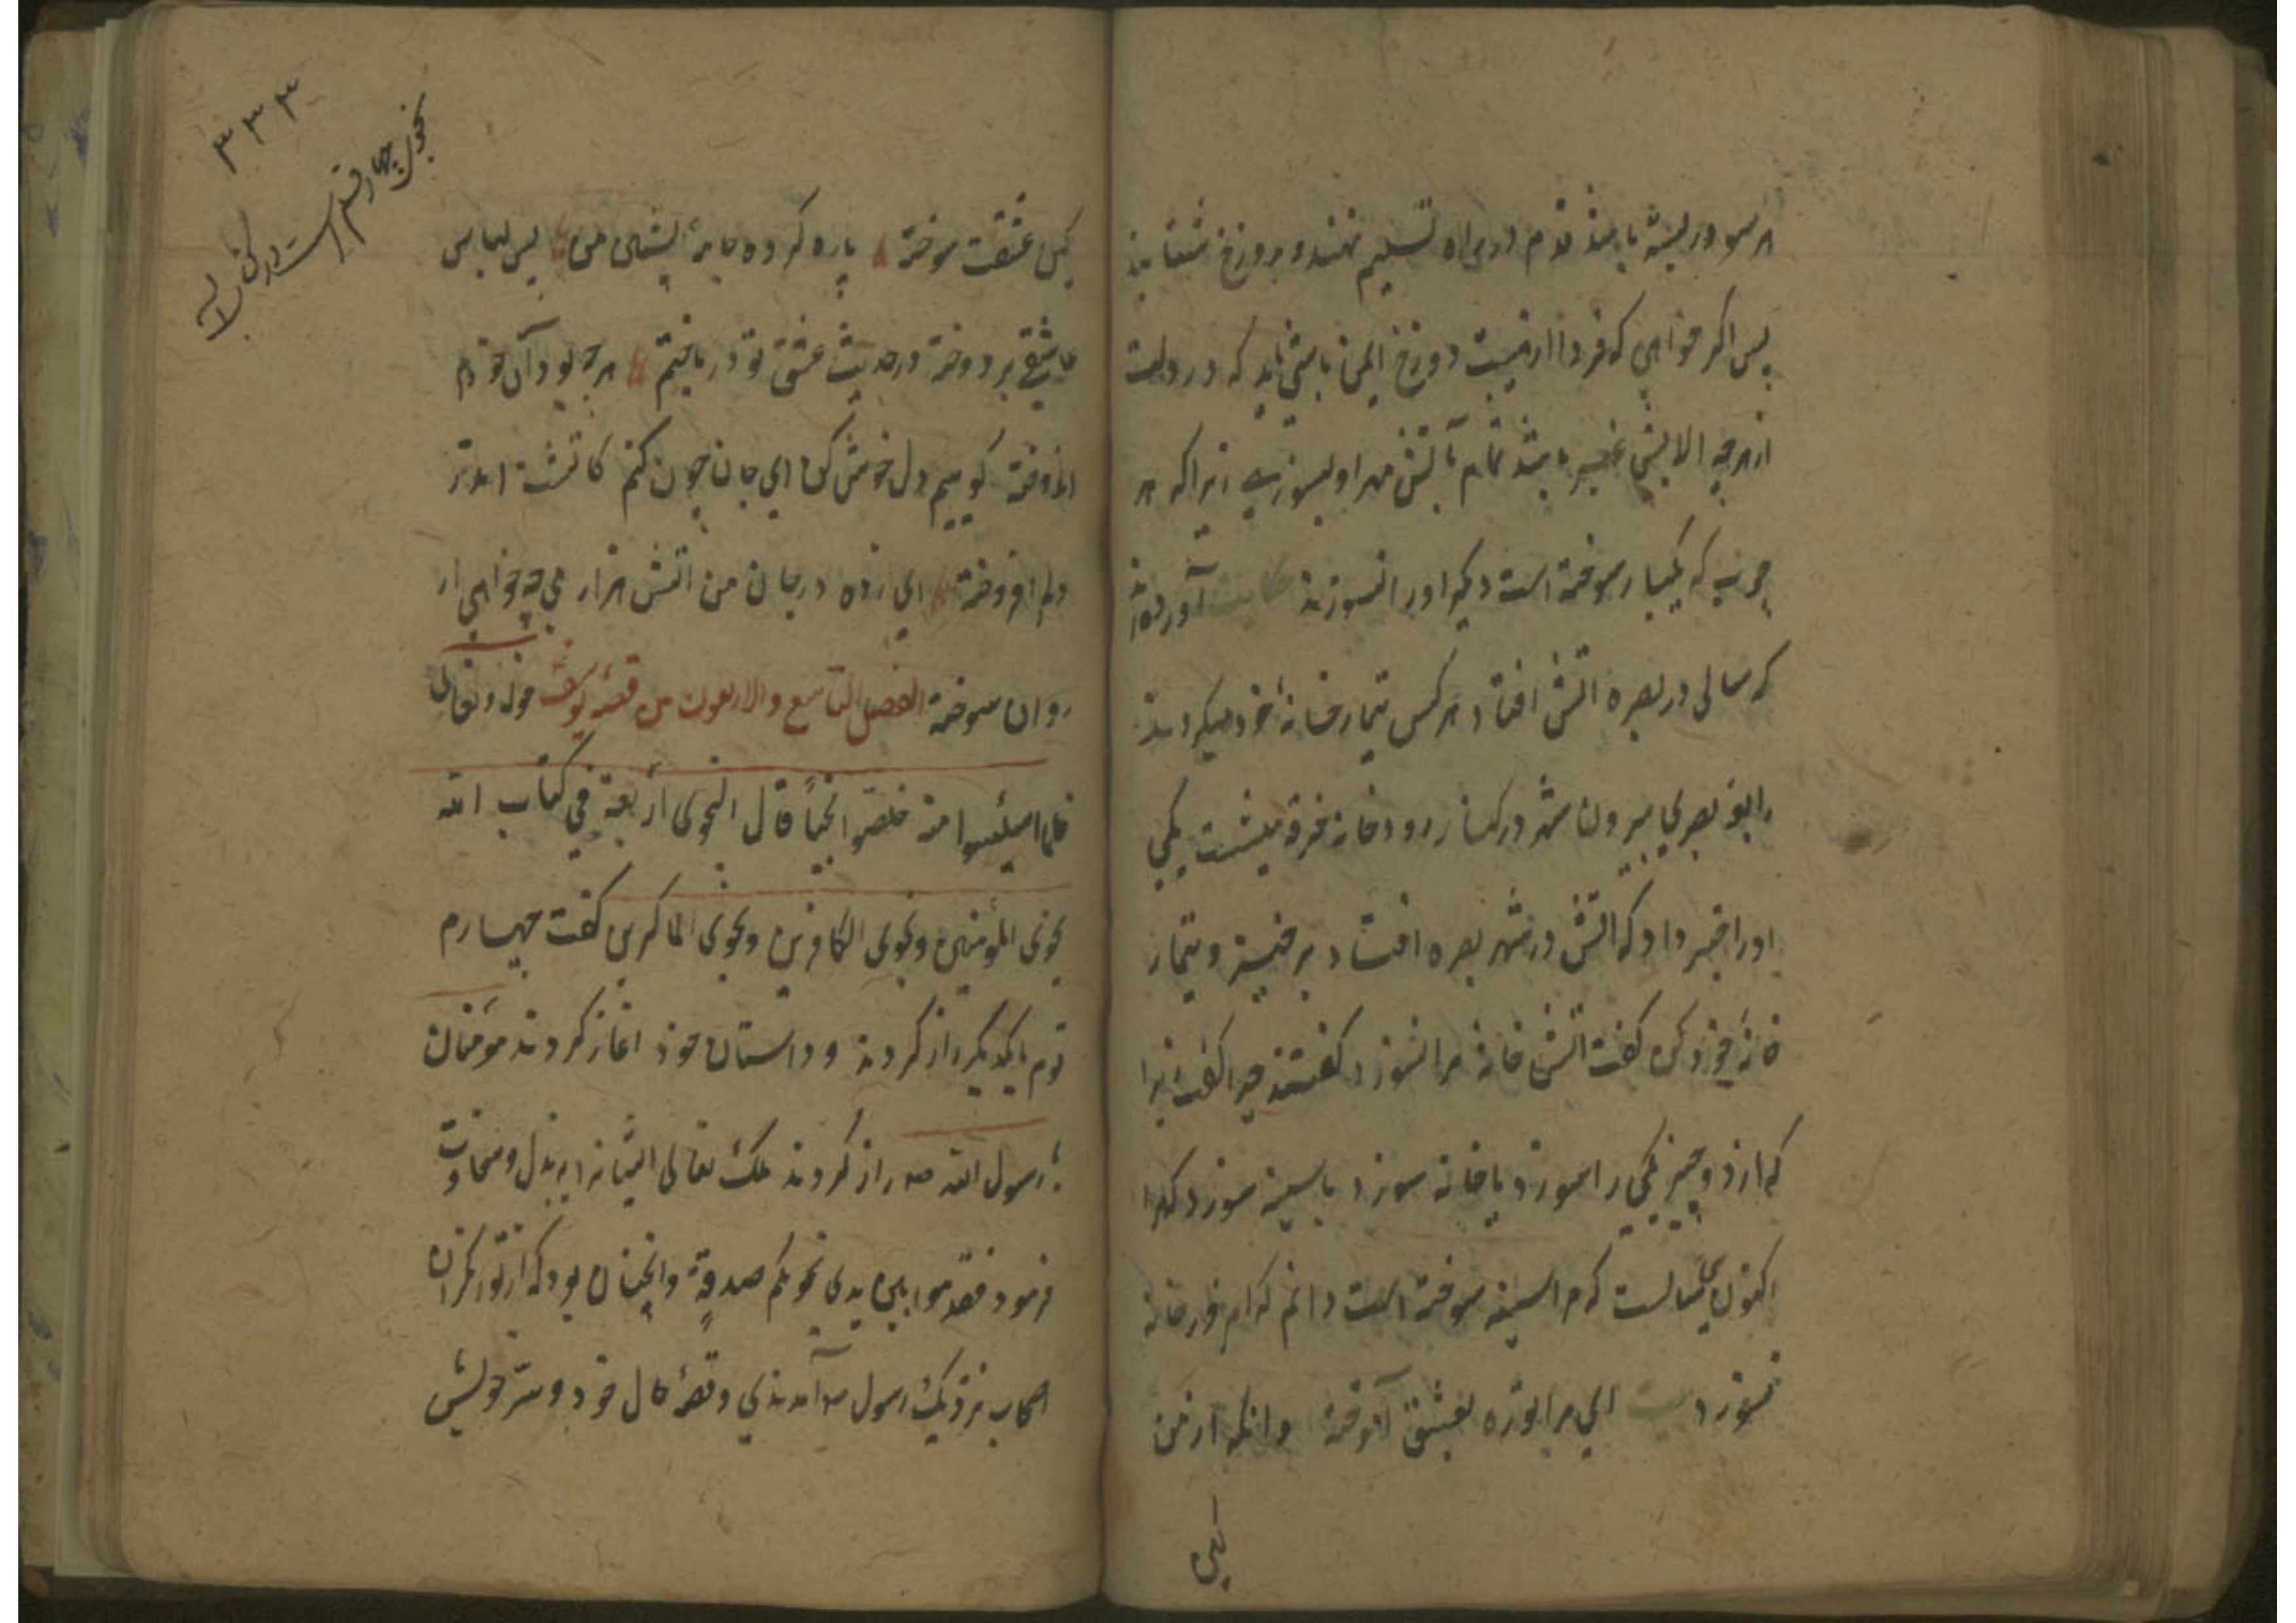 پس اگر خواهی که فردا از هیبت دوزخ ایمن باشی باید که در دلت
از هرچه الایش غیر باشد تمام بآتش مهر او بسوزی زیراکه هر
چربی که یکبار سوخته است دیگر اورا نسوزند حکایت آورده‌اند
که سالی در بصره اتش افتاد هر کس تیمار خانهٔ خود میکردند
رابعهٔ بصری بیرون شهر در کنار رودخانه خرقه میشست یکی
اورا خبر داد که اتش در شهر بصره افتاد برخیز و تیمار
خانهٔ خود کن گفت اتش خانه مرا نسوزد گفتند چرا گفت زیرا
که از دو چیز یکی را سوزد یا خانه سوزد یا سینه سوزد
اکنون سالست که مرا سینه سوخته است دانم که خانه
نسوزد بیت ای مرا بعشق آموخته وانکه از من
کین
۳۳۳
نجوی چهار قسم است در کتاب الله
کین عشقت سوخته پاره کرده جامهٔ پشمین من پس لباس
عاشقی بر دوخته در حدیث عشق تو در باختم هرچه بود آن خودم
اندوخته گوییم دل خوش کن ای جان چون کنم کاتشت اندر
دلم افروخته ای زده در جان من اتش هزار می چه خواهی از
روان سوخته الفصل التاسع والاربعون من قصه یوسف قوله تعالی
فلما استیئسوا منه خلصوا نجیاً قال النجوی أربعة فی کتاب الله
نجوی المؤمنین ونجوی الکافرین ونجوی الماکرین گفت چهارم
قوم بایکدیگر راز کردند و داستان خود اغاز کردند مؤمنان
با رسول الله صه راز کردند ملک تعالی ایشانرا ببذل و سخاوت
فرمود فقدموا بین یدی نجویکم صدقةً وانچنان بود که توانگران
اصحاب نزدیک رسول صه آمدندی و قصهٔ حال خود و سر خویش